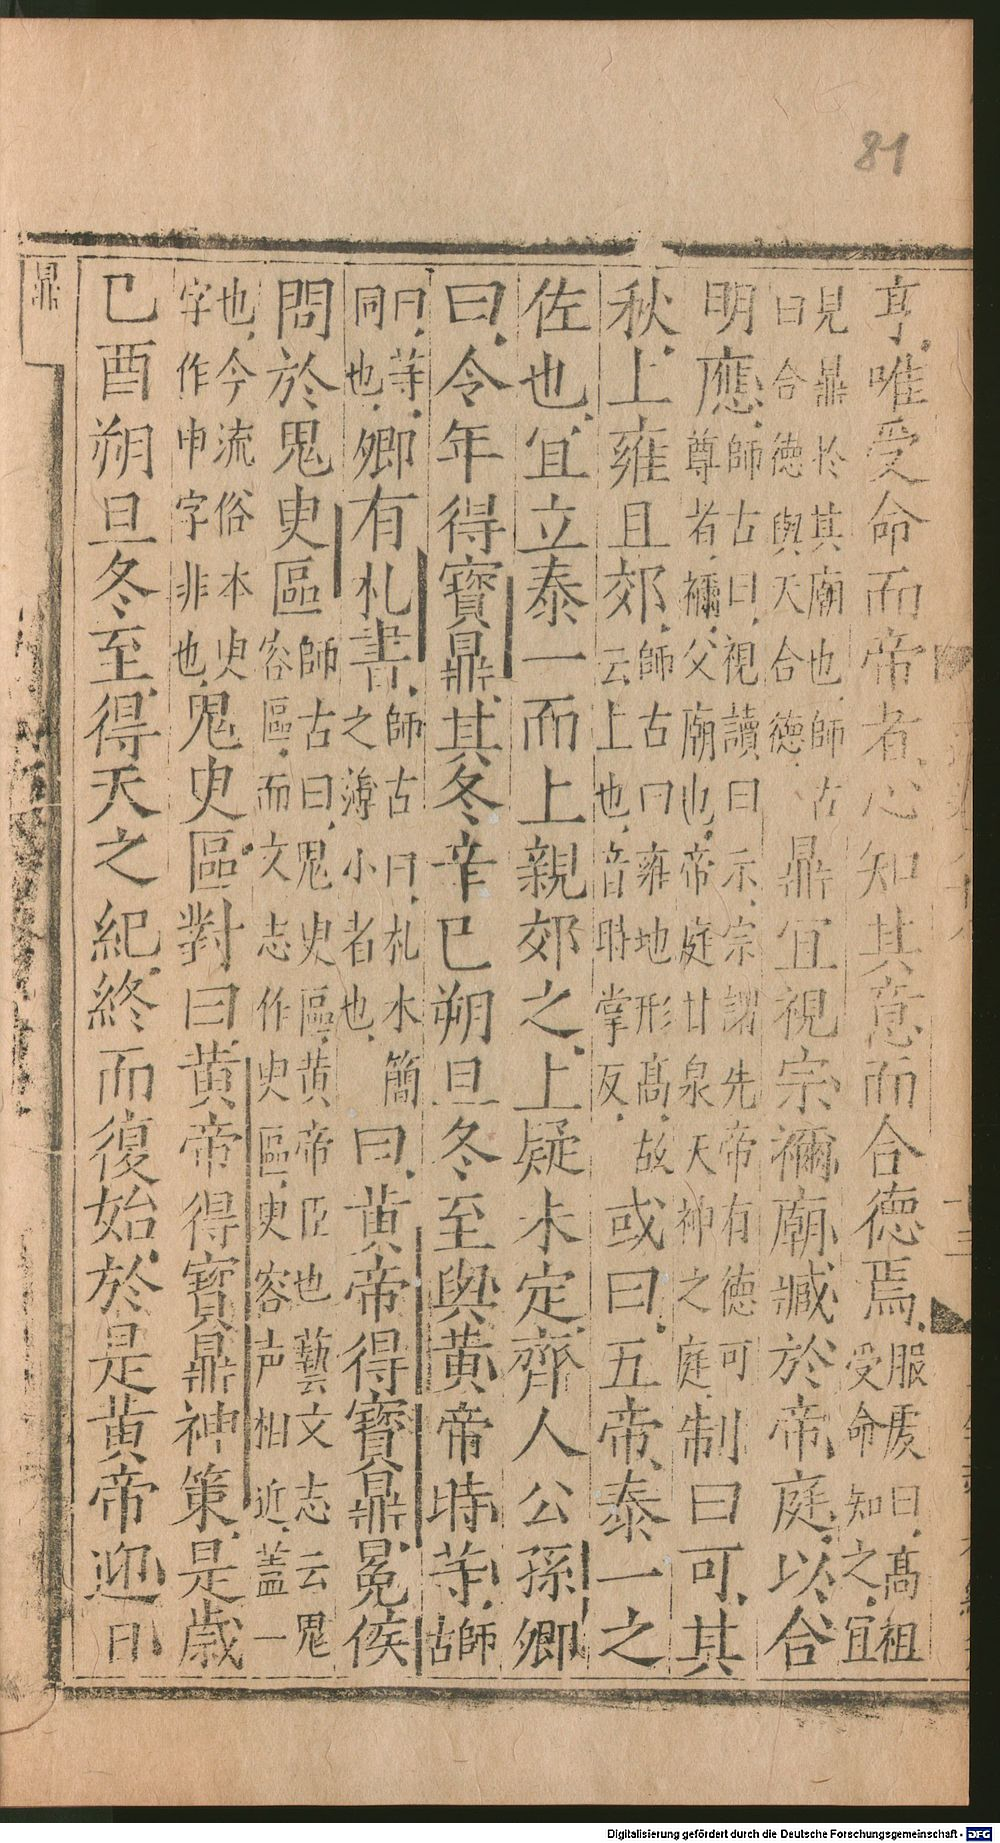 81
亨唯受命而帝者心知其意而合德焉服䖍曰高祖受命知之宜
見鼎於其廟也師古曰合德與天合德鼎宜視宗禰廟臧於帝庭以合
明應師古曰視讀曰示宗謂先帝有德可尊者禰父廟也帝庭甘泉天神之庭制曰可其
秋上雍且郊師古曰雍地形髙故云上也音時掌反或曰五帝泰一之
佐也宜立泰一而上親郊之上疑未定齊人公孫卿
曰今年得寳鼎其冬辛巳朔旦冬至與黄帝時等師古
曰等同也卿有札書師古曰札木簡之薄小者也曰黄帝得寳鼎冕侯
問於鬼臾區師古曰鬼臾區黄帝臣也藝文志云鬼容區而文志作臾區臾容声相近盖一
也今流俗本臾字作申字非也鬼臾區對曰黄帝得寳鼎神策是歲
己酉朔旦冬至得天之紀終而復始於是黄帝迎日
鼎
Digitalisierung gefördert durch die Deutsche Forschungsgemeinschaft - DFG